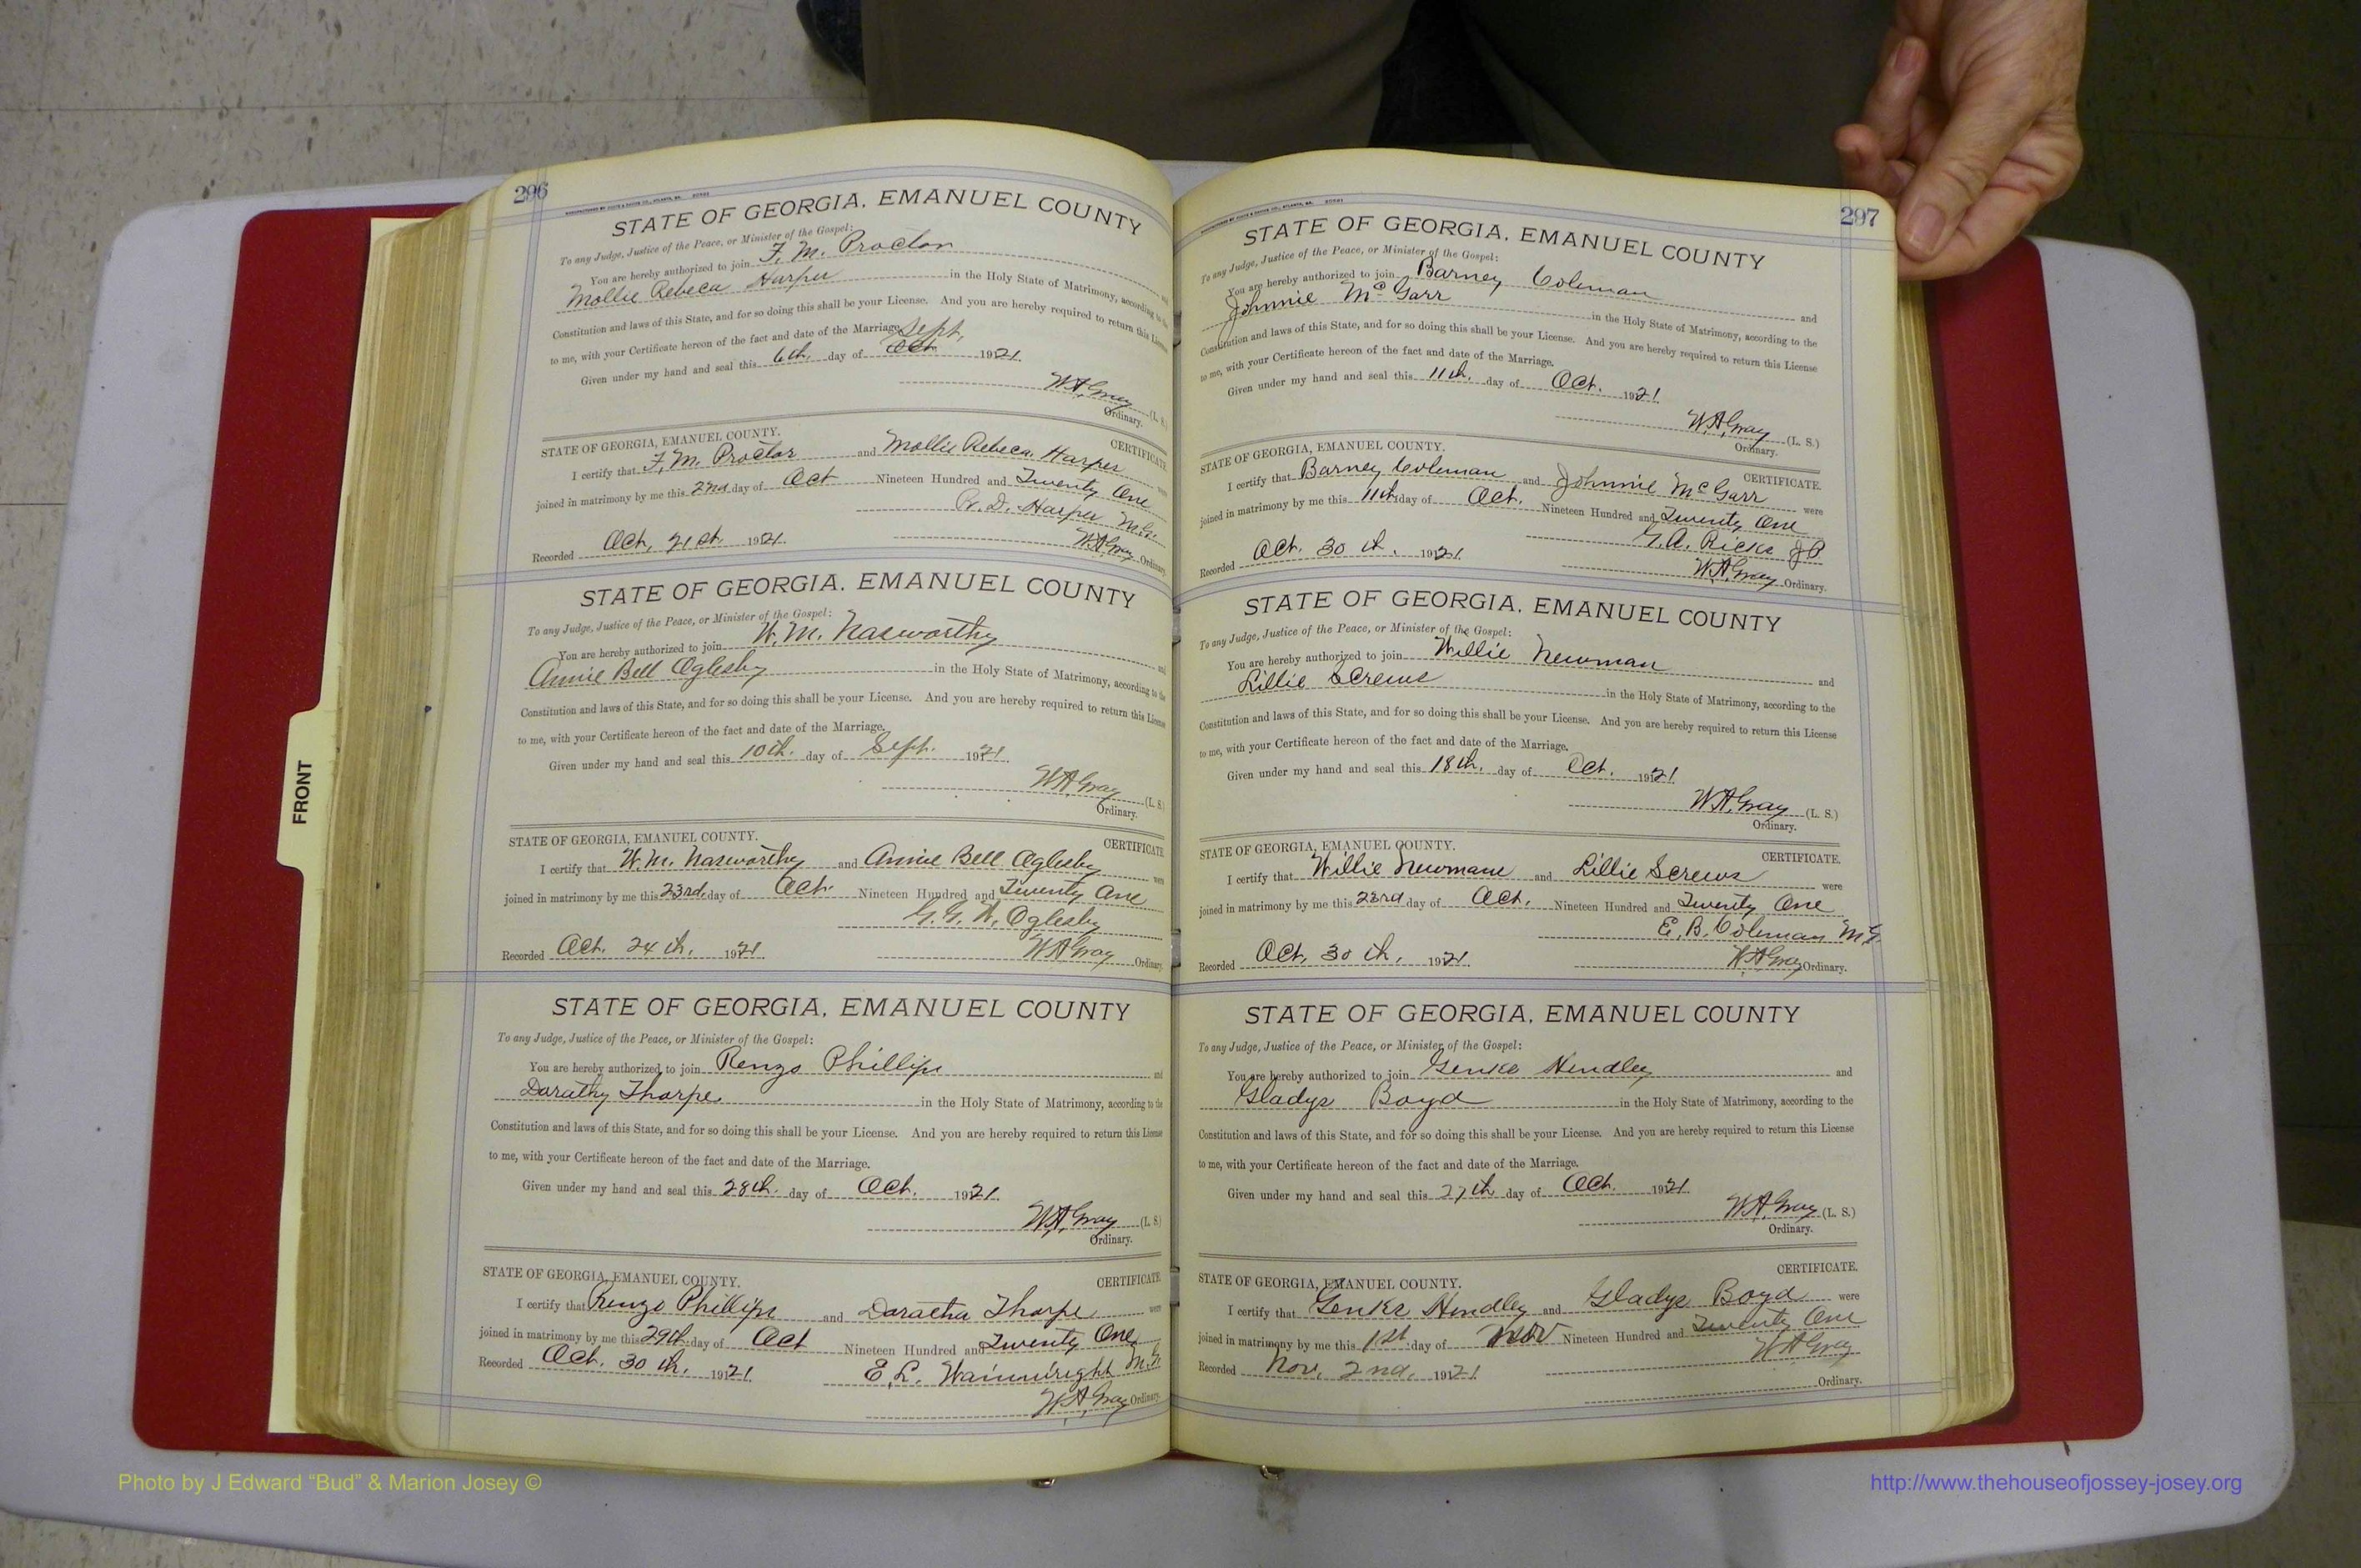 296
STATE OF GEORGIA, EMANUEL COUNTY
To any Judge, Justice of the Peace, or Minister of the Gospel:
You are hereby authorized to join F. M. Proctor and
Mollie Rebeca Harper in the Holy State of Matrimony, according to the
Constitution and laws of this State, and for so doing this shall be your License. And you are hereby required to return this License
to me, with your Certificate hereon of the fact and date of the Marriage. Sept.
Given under my hand and seal this 6th. day of Oct. 1921.
W.A. Gray (L. S.)
Ordinary.
STATE OF GEORGIA, EMANUEL COUNTY. CERTIFICATE.
I certify that F. M. Proctor and Mollie Rebeca Harper were
joined in matrimony by me this 2nd day of Oct Nineteen Hundred and Twenty One
R. D. Harper M.G.
Recorded Oct, 21st. 1921. W.A. Gray Ordinary.
STATE OF GEORGIA, EMANUEL COUNTY
To any Judge, Justice of the Peace, or Minister of the Gospel:
You are hereby authorized to join W. M. Nasworthy and
Annie Bell Oglesby in the Holy State of Matrimony, according to the
Constitution and laws of this State, and for so doing this shall be your License. And you are hereby required to return this License
to me, with your Certificate hereon of the fact and date of the Marriage.
Given under my hand and seal this 10th. day of Sept. 1921.
W.A. Gray (L. S.)
Ordinary.
STATE OF GEORGIA, EMANUEL COUNTY. CERTIFICATE.
I certify that W. M. Nasworthy and Annie Bell Oglesby were
joined in matrimony by me this 23rd. day of Oct. Nineteen Hundred and Twenty One
G. G. W. Oglesby
Recorded Oct. 24th. 1921. W.A. Gray Ordinary.
STATE OF GEORGIA, EMANUEL COUNTY
To any Judge, Justice of the Peace, or Minister of the Gospel:
You are hereby authorized to join Renzo Phillips and
Dorathy Thorpe in the Holy State of Matrimony, according to the
Constitution and laws of this State, and for so doing this shall be your License. And you are hereby required to return this License
to me, with your Certificate hereon of the fact and date of the Marriage.
Given under my hand and seal this 28th. day of Oct. 1921.
W.A. Gray (L. S.)
Ordinary.
STATE OF GEORGIA, EMANUEL COUNTY. CERTIFICATE.
I certify that Renzo Phillips and Doratha Thorpe were
joined in matrimony by me this 29th. day of Oct Nineteen Hundred and Twenty One
Recorded Oct. 30th. 1921. E. L. Wainwright M.G.
W.A. Gray Ordinary.
297
STATE OF GEORGIA, EMANUEL COUNTY
To any Judge, Justice of the Peace, or Minister of the Gospel:
You are hereby authorized to join Barney Coleman and
Johnnie McGarr in the Holy State of Matrimony, according to the
Constitution and laws of this State, and for so doing this shall be your License. And you are hereby required to return this License
to me, with your Certificate hereon of the fact and date of the Marriage.
Given under my hand and seal this 11th. day of Oct. 1921.
W.A. Gray (L. S.)
Ordinary.
STATE OF GEORGIA, EMANUEL COUNTY. CERTIFICATE.
I certify that Barney Coleman and Johnnie McGarr were
joined in matrimony by me this 11th day of Oct. Nineteen Hundred and Twenty One
G. A. Ricks JP
Recorded Oct. 30th. 1921. W.A. Gray Ordinary.
STATE OF GEORGIA, EMANUEL COUNTY
To any Judge, Justice of the Peace, or Minister of the Gospel:
You are hereby authorized to join Willie Newman and
Lillie Screws in the Holy State of Matrimony, according to the
Constitution and laws of this State, and for so doing this shall be your License. And you are hereby required to return this License
to me, with your Certificate hereon of the fact and date of the Marriage.
Given under my hand and seal this 18th. day of Oct. 1921.
W.A. Gray (L. S.)
Ordinary.
STATE OF GEORGIA, EMANUEL COUNTY. CERTIFICATE.
I certify that Willie Newman and Lillie Screws were
joined in matrimony by me this 23rd day of Oct. Nineteen Hundred and Twenty One
E. B. Coleman M.G.
Recorded Oct, 30th. 1921. W.A. Gray Ordinary.
STATE OF GEORGIA, EMANUEL COUNTY
To any Judge, Justice of the Peace, or Minister of the Gospel:
You are hereby authorized to join Genks Hendley and
Gladys Boyd in the Holy State of Matrimony, according to the
Constitution and laws of this State, and for so doing this shall be your License. And you are hereby required to return this License
to me, with your Certificate hereon of the fact and date of the Marriage.
Given under my hand and seal this 27th day of Oct. 1921.
W.A. Gray (L. S.)
Ordinary.
STATE OF GEORGIA, EMANUEL COUNTY. CERTIFICATE.
I certify that Genks Hendley and Gladys Boyd were
joined in matrimony by me this 1st day of Nov Nineteen Hundred and Twenty One
Recorded Nov. 2nd. 1921. W.A. Gray
Ordinary.
FRONT
Photo by J Edward “Bud” & Marion Josey ©
http://www.thehouseofjossey-josey.org